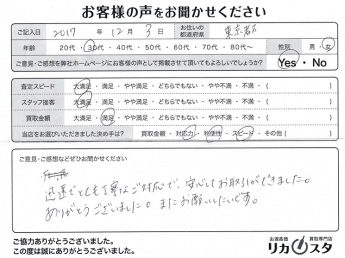 お客様の声をお聞かせください
ご記入日 2017年 12月 3日 お住いの都道府県 東京都
年齢 20代・30代・40代・50代・60代・70代・80代〜 性別 男・女
ご意見・ご感想を弊社ホームページにお客様の声として掲載させて頂いてもよろしいでしょうか? Yes・No
査定スピード 大満足・満足・やや満足・どちらでもない・やや不満・不満・( )
スタッフ接客 大満足・満足・やや満足・どちらでもない・やや不満・不満・( )
買取金額 大満足・満足・やや満足・どちらでもない・やや不満・不満・( )
当店をお選びいただきました決め手は? 買取金額・対応力・利便性・スピード・その他( )
ご意見・ご感想などぜひお聞かせください
迅速でとても丁寧なご対応で、安心してお取引ができました。
ありがとうございました。またお願いしたいです。
ご協力ありがとうございました。
この度は誠にありがとうございました。
お酒高価買取専門店
リカスタ